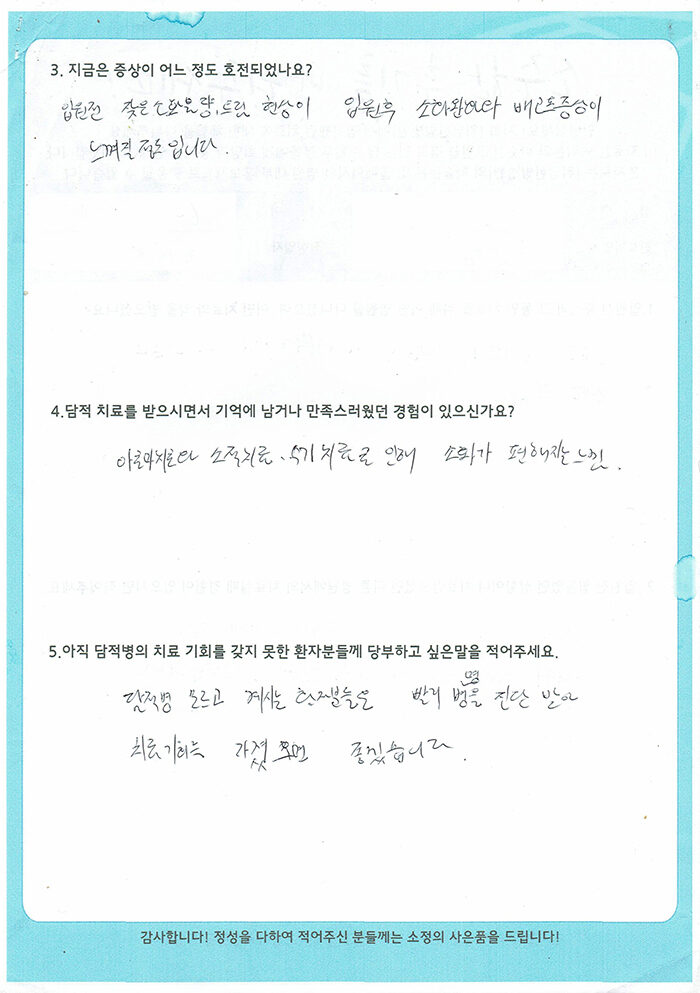 3. 지금은 증상이 어느 정도 호전되었나요?
입원전 잦은 소화불량, 트림 현상이 입원후 소화완하다 배고픔증상이
느껴질 정도 입니다
4.담적 치료를 받으시면서 기억에 남거나 만족스러웠던 경험이 있으신가요?
아로마치료와 소적치료, 수기치료로 인해 소화가 편해지는 느낌.
5.아직 담적병의 치료 기회를 갖지 못한 환자분들께 당부하고 싶은말을 적어주세요.
담적병 모르고 계시는 환자분들은 빨리 병명을 진단 받아
치료기회를 가졌으면 좋겠습니다.
감사합니다! 정성을 다하여 적어주신 분들께는 소정의 사은품을 드립니다!